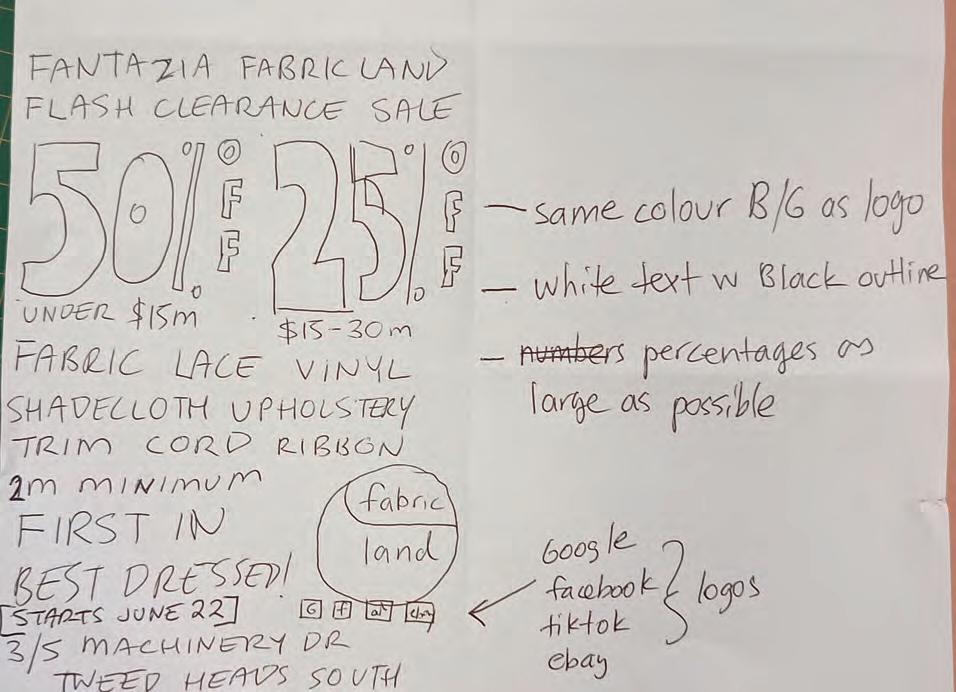 FANTAZIA FABRIC LAND
FLASH CLEARANCE SALE
50% OFF 25% OFF
UNDER $15m
$15-30m
FABRIC LACE VINYL
SHADECLOTH UPHOLSTERY
TRIM CORD RIBBON
2m MINIMUM
FIRST IN
BEST DRESSED!
[STARTS JUNE 22]
3/5 MACHINERY DR
TWEED HEADS SOUTH
fabric
land
G f
– same colour B/G as logo
– white text w Black outline
– numbers percentages as
large as possible
Google
facebook
tiktok
ebay
logos